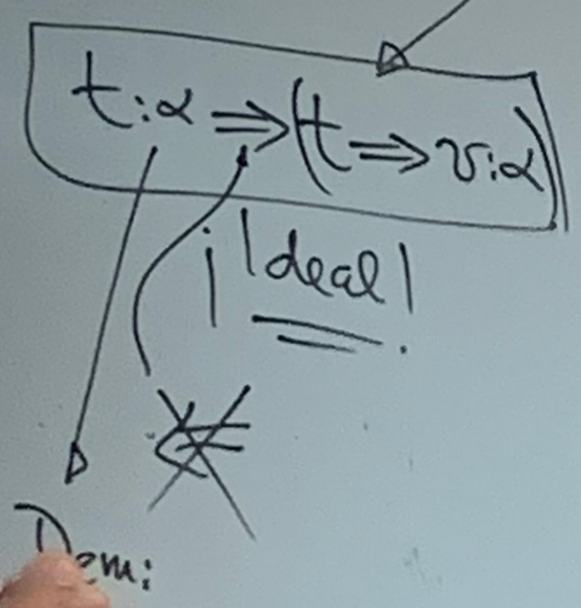 t:α ⇒ (t ⇒ v:α)
¡Ideal!
⇐
Dem: